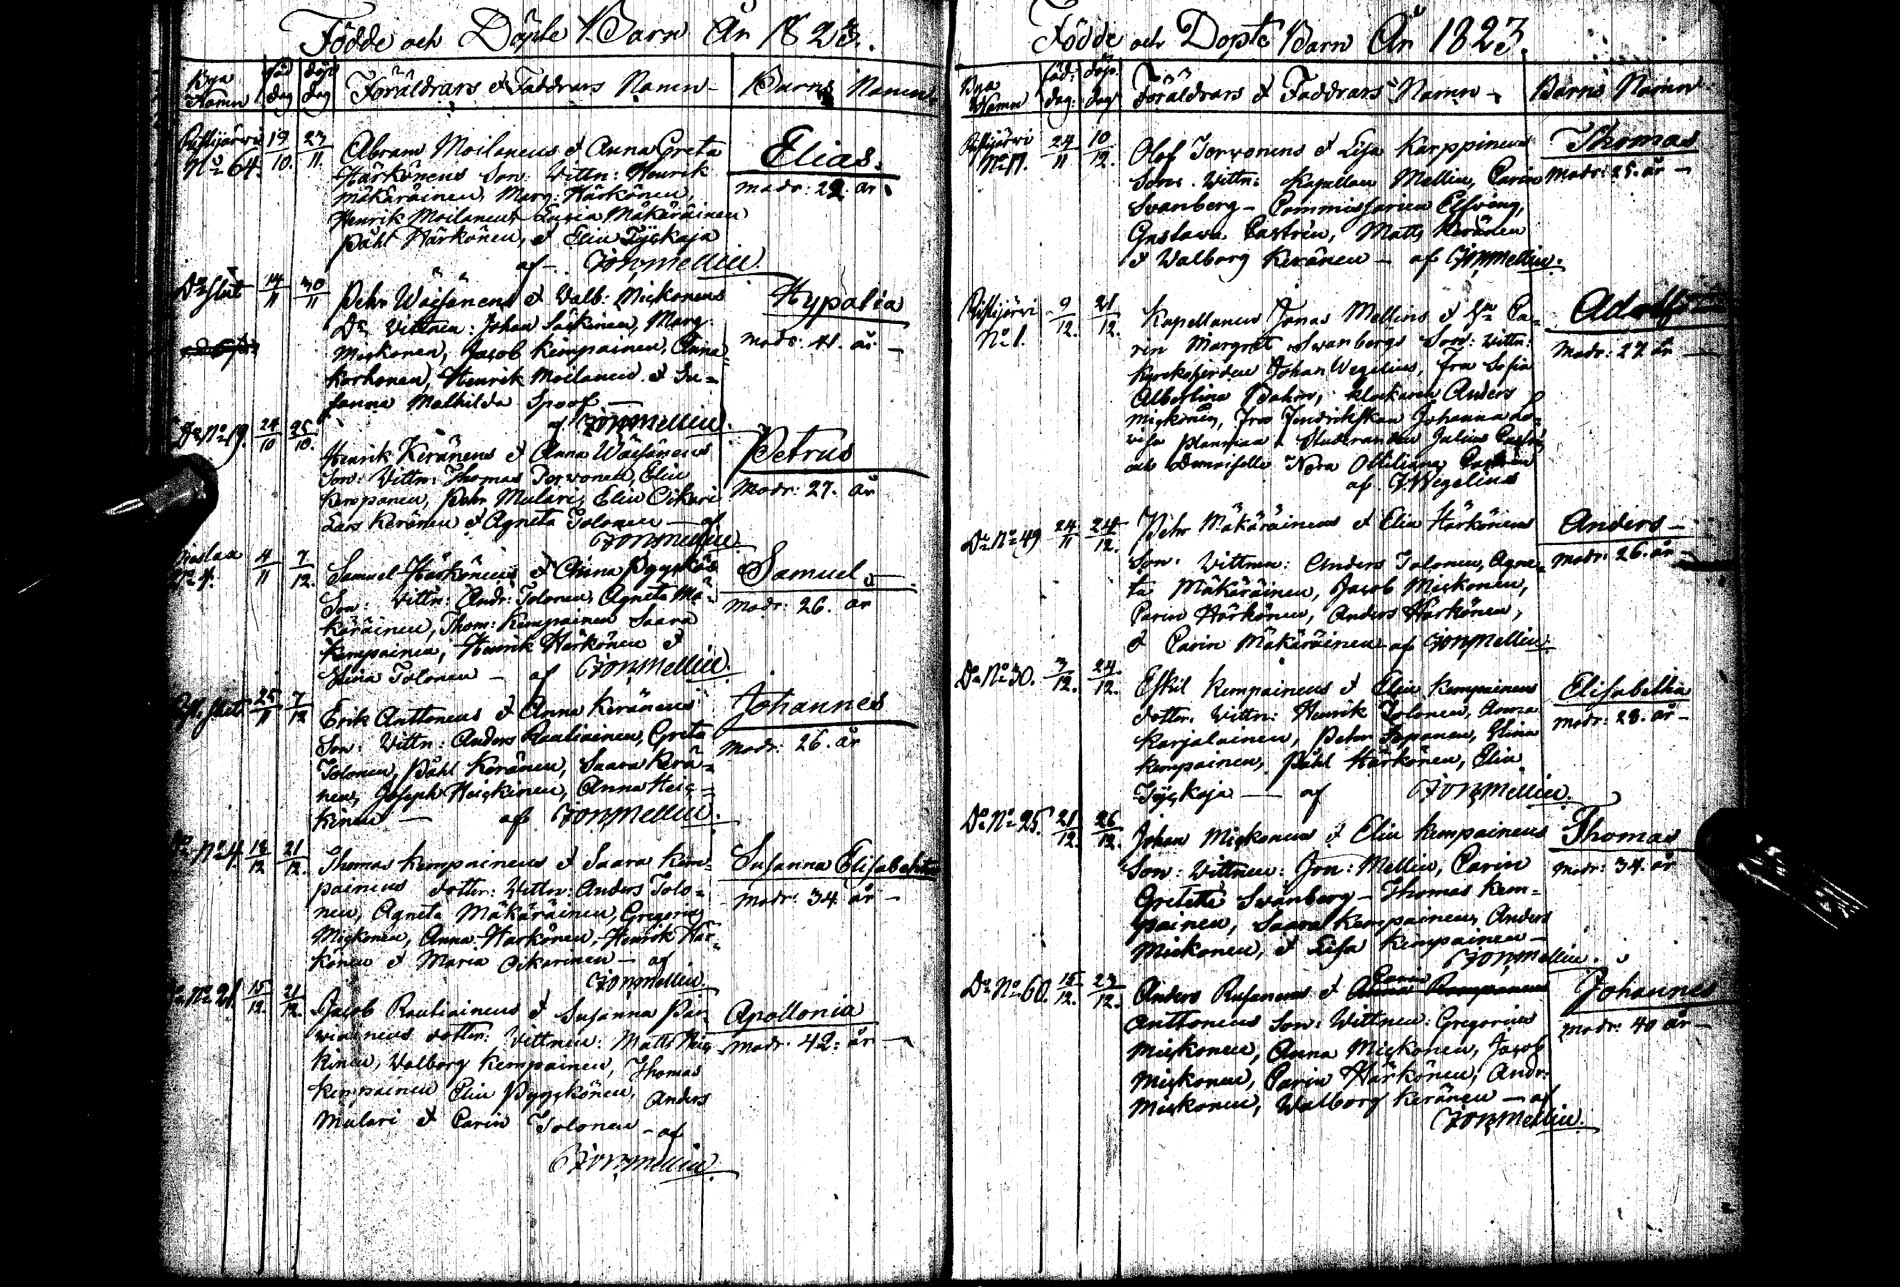 Födde och Döpte Barn År 1823.
Bya Namn
föd dag
döp dag
Föräldrars & Faddrars Namn
Barns Namn
Ristijärvi No 64.
19/10.
23/11.
Abram Moilanens & Anna Greta
Härkönens Son: Vittn: Henrik
Mäkäräinen, Marg: Härkönen,
Henrik Moilanen Mäkäräinen
Påhl Härkönen, & Elin Tyskaja
af Jon: Mellin.
Elias.
modr: 22. år.
14/11
30/11
Pehr Wäisänens & Valb: Miskonens
Dr Vittnen: Johan Säskinen, Marg:
Miskonen, Jacob Kempainen, Anna
Korhonen, Henrik Moilanen & Su=
sanna Mathilda Spoof
af Jon: Mellin.
Hypatia
modr: 41. år
Do No 19.
24/10
25/10.
Henrik Keränens & Anna Wäisänens
Son: Vittn: Thomas Torvonen, Elin
Kempainen, Pehr Mulari, Elin Oikari
Lars Keränen & Agneta Tolonen af
Jon: Mellin
Petrus
Modr: 27. år
4/11
7/12.
Samuel Härkönens & Anna Pyyskös
Son: Vittn: Andr: Tolonen, Agneta Mä=
käräinen, Thom: Kempainen Saara
Kempainen, Henrik Härkönen &
Stina Tolonen af Jon: Mellin.
Samuel
modr: 26. år
25/11
7/12
Erik Anttonens & Anna Keränens
Son: Vittn: Anders Rautiainen, Greta
Tolonen, Påhl Keränen, Saara Kerä=
nen, Joseph Heiskinen, Anna Heis=
kinen af Jon: Mellin.
Johannes
modr: 26. år
No 4.
21/12.
Thomas Kempainens & Saara Kem=
painens dotter: Vittn: Anders Tolo=
nen, Agneta Mäkäräinen, Gregorius
Miskonen, Anna Härkönen, Henrik Här=
könen & Maria Oikarinen af
Jon: Mellin
Susanna Elisabetha
modr: 34. år
No 21.
15/12.
21/12.
Jacob Rautiainens & Susanna Par=
viainens dotter: Vittnen: Matts Heis
kinen, Valborg Kempainen, Thomas
Kempainen Elin Pyyskönen, Anders
Mulari & Carin Tolonen af
Jon: Mellin
Apollonia
modr. 42. år
Födde och Döpte Barn År 1823.
Bya Namn
föd: dag:
döp: dag
Föräldrars & Faddrars Namn
Barns Namn
Ristijärvi No 17.
24/11
10/12.
Olof Torvonens & Lisa Karppinens
Son. Vittn: Kapellan Mellin, Carin
Svanberg Commissarien
Gustava Castrén, Matts Keränen
& Walborg Keränen af Jon: Mellin.
Thomas
Modr: 25. år
Ristijärvi No 1.
9/12.
21/12.
Kapellanens Jonas Mellins & Fru Ca=
rin Margret Svanbergs Son: Vittn:
Kyrkoherden Johan Wegelius, Fru Sofia
Albertina klockaren Anders
Miskonen, Fru Johanna Lo=
visa & Studeranden Julius Castrén
och Demoiselle Nora Ottiliana Castrén
af J. Wegelius
Adolf
Modr: 27 år
Do No 49
24/11
24/12.
Pehr Mäkäräinens & Elin Härkönens
Son: Vittnen: Anders Tolonen, Agne=
ta Mäkäräinen, Jacob Miskonen,
Carin Härkönen, Anders Härkönen,
& Carin Mäkäräinen af Jon: Mellin.
Anders
modr: 26. år
Do No 30.
3/12.
24/12.
Eskil Kempainens & Elin Kempainens
dotter. Vittn: Henrik Tolonen, Anna
Karjalainen, Pehr Elina
Kempainen, Påhl Härkönen, Elin
Tyskaja af Jon: Mellin.
Elisabetha
modr: 28. år
Do No 25.
21/12.
26/12.
Johan Miskonens & Elin Kempainens
Son: Vittnen: Jon: Mellin, Carin
Gretette Svanberg Thomas Kem=
painen, Saara Kempainen, Anders
Miskonen, & Lisa Kempainen
Jon: Mellin.
Thomas
modr: 34. år
Do No 60.
15/12.
23/12.
Anders Rusanens & Carin
Anttonens Son: Wittnen: Gregorius
Miskonen, Anna Miskonen, Jacob
Miskonen, Carin Härkönen, Andr:
Miskonen, Walborg Keränen af
Jon: Mellin.
Johannes
modr: 40 år